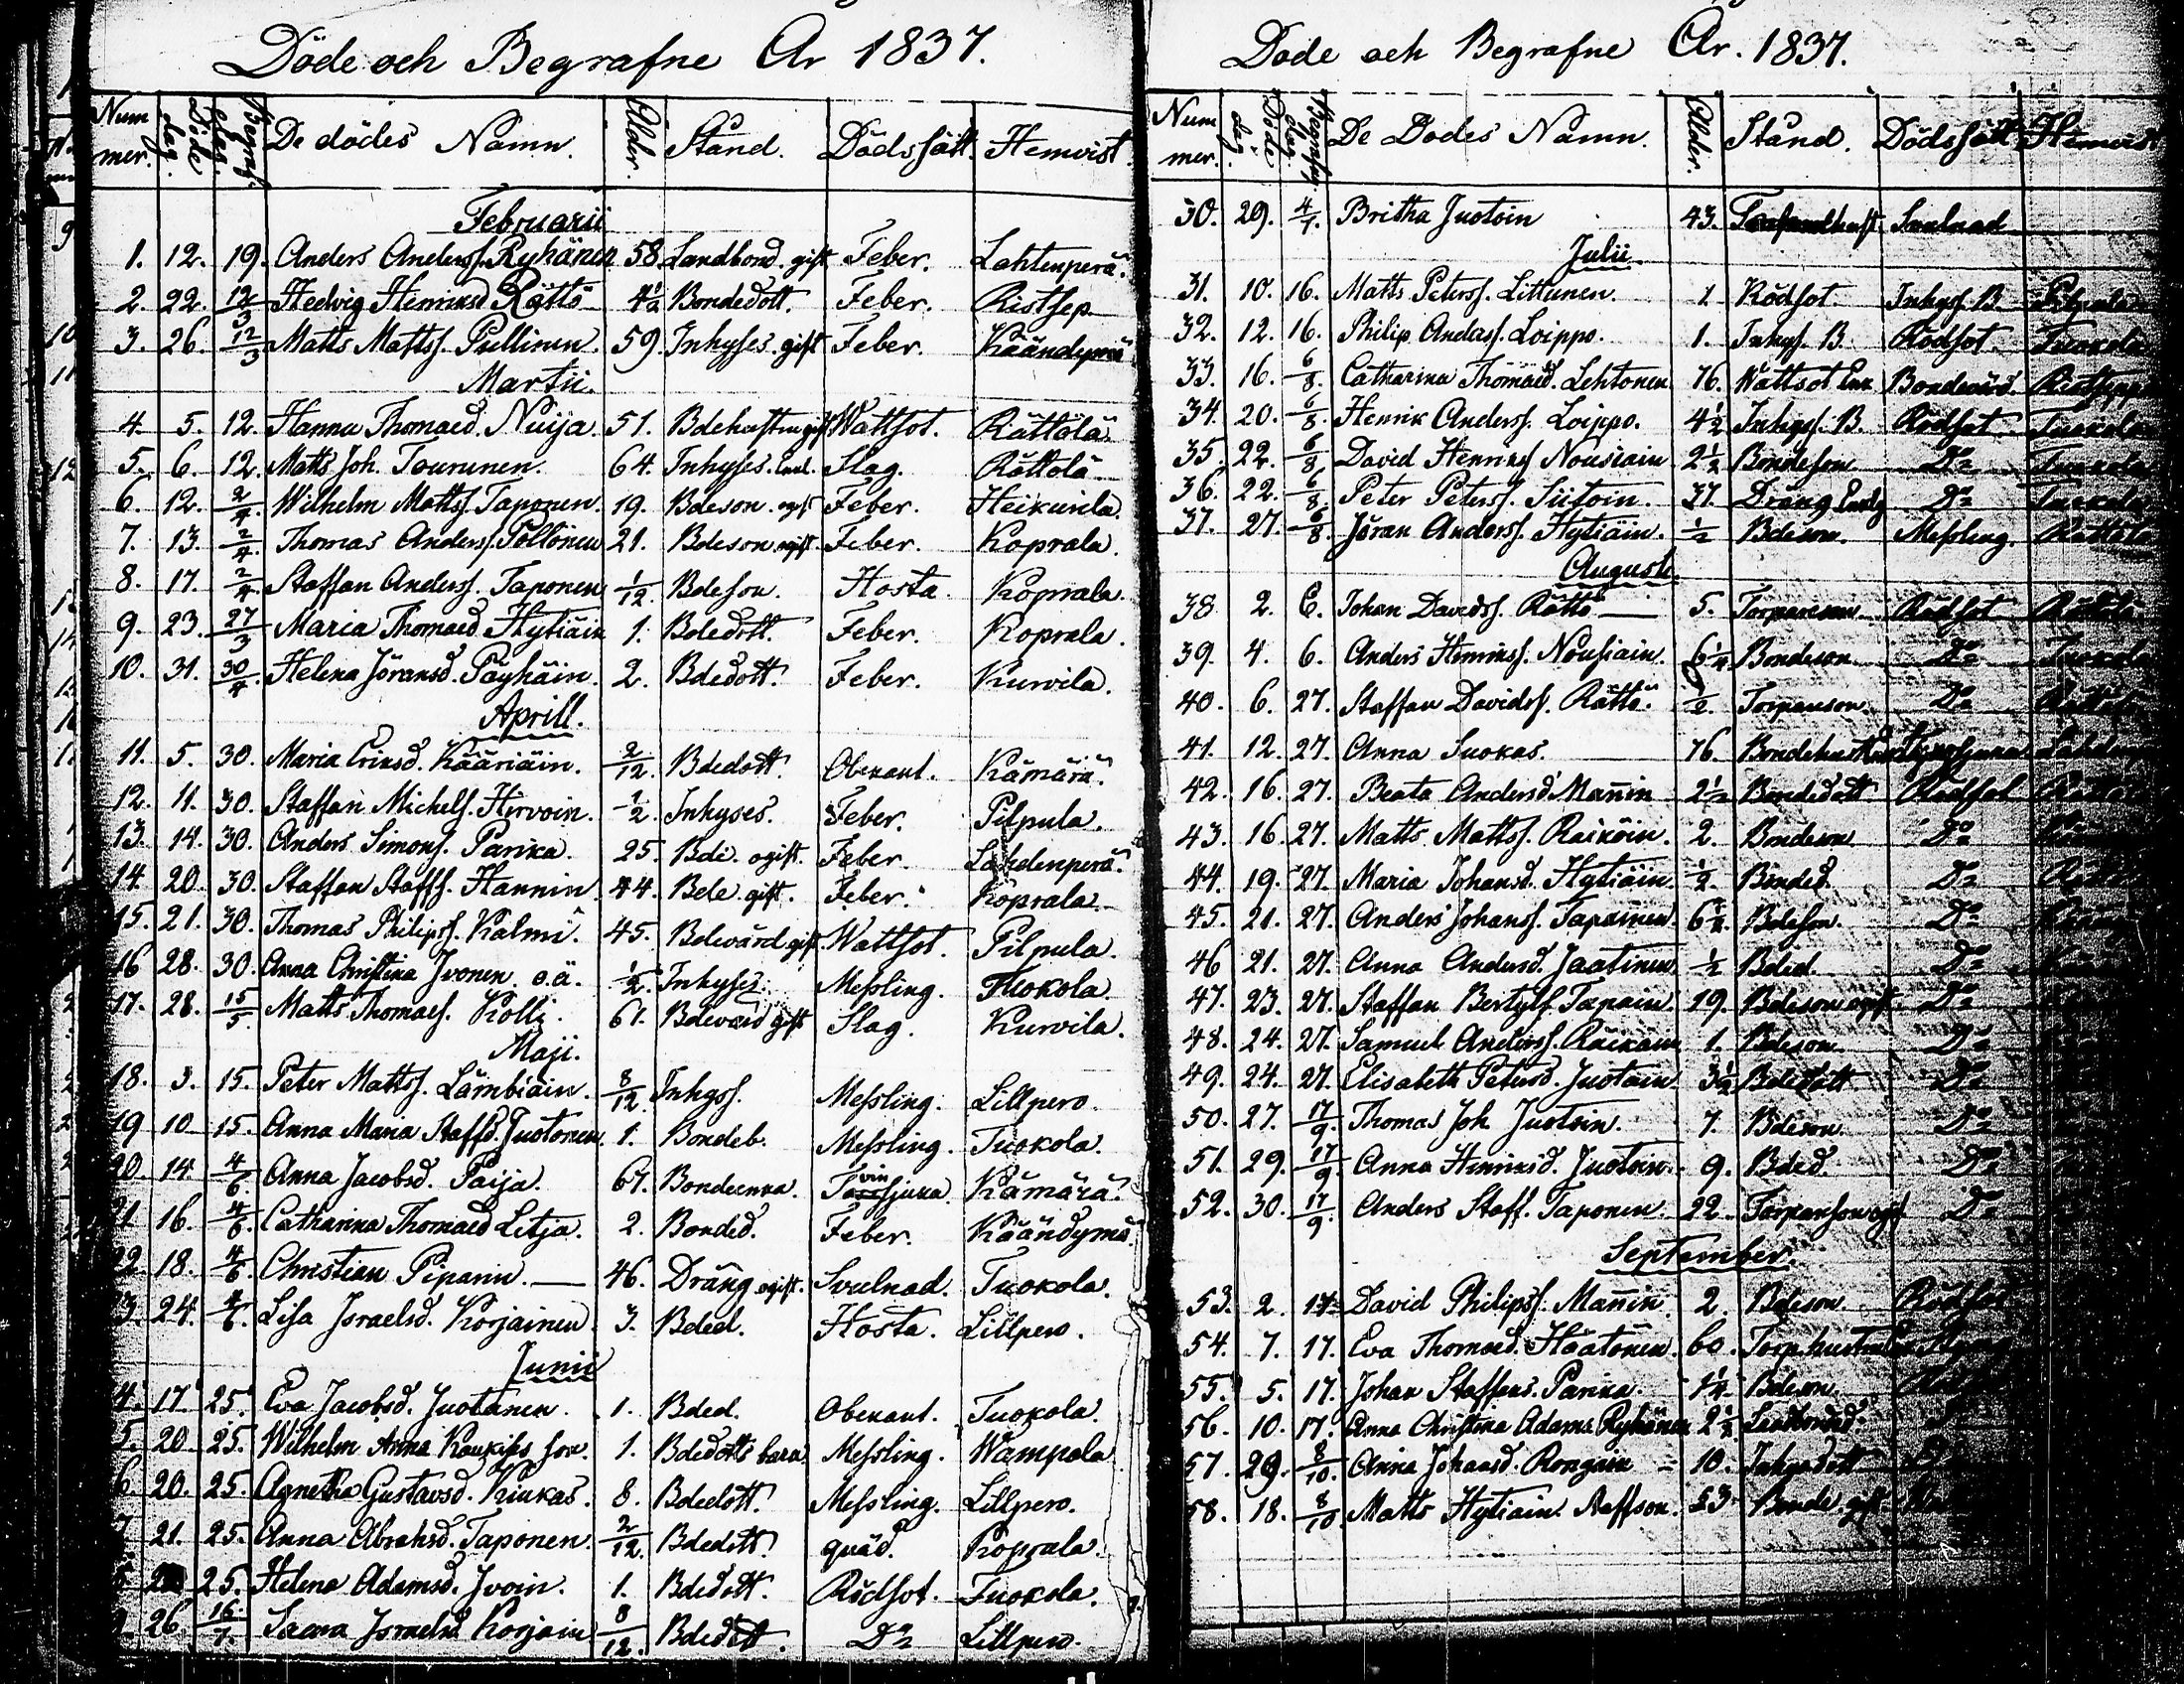 Döde och Begrafne År 1837.
Nummer. Döde dag. Begraf. dag. De dödes Namn. Ålder. Stånd. Dödssätt. Hemvist.
Februarii
1. 12. 19. Anders Anderss. Ryhänen 58. Landbond. gift Feber. Lahtenperä.
2. 22. 12/3 Hedwig Henriksd Rättö 4½ Bondedott. Feber. Ristsep
3. 26. 12/3 Matts Mattss. Pullinen. 59. Inhyses. gift Feber.
Martii.
4. 5. 12. Hanna Thomaed. Nuija. 51. Wattsot. Rättölä
5. 6. 12. Matts Joh. Tourunen. 64. Inhyses. Enkl. Slag. Rättölä
6. 12. 2/4. Wilhelm Mattss. Taponen. 19. Bdeson. ogift Feber. Heikurila.
7. 13. 2/4. Thomas Anderss. Pöllönen 21. Bdeson. ogift. Feber. Koprala.
8. 17. 2/4. Staffan Anderss. Taponen 1/12. Bdeson. Hosta. Koprala.
9. 23. 27/3 Maria Thomaed. Hytiäin 1. Bdedott. Feber. Koprala.
10. 31. 30/4. Helena Jöransd. Päyhäin. 2. Bdedott. Feber. Kurvila.
Aprill.
11. 5. 30. Maria Ericsd. Kääriäin. 2/12. Bdedott. Obekant. Kämärä.
12. 11. 30. Staffan Michels. Hirvoin. ½. Inhyses. Feber. Pilpula.
13. 14. 30. Anders Simons. Parika. 25. Bde. ogift. Feber. Lahdenperä.
14. 20. 30. Staffan Staffs. Hannin 44. Bde. gift. Feber. Koprala
15. 21. 30. Thomas Philipss. Kalmi. 45. Bdevärd gift Wattsot. Pilpula.
16 28. 30. Anna Christina Ivonen. o.ä. ½. Inhyses. Messling. Tuokola.
17. 28. 15/5. Matts Thomaes. Kolli. 61. Bdevärd gift Slag. Kurvila.
Maji.
18. 3. 15. Peter Mattss. Lämbiäin. 8/12. Inhyss. Messling. Lillpero.
19 10 15. Anna Maria Staffsd. Juotonen. 1. Bondeb. Messling. Tuokola.
20. 14. 4/6. Anna Jacobsd. Paija. 67. Bondeenka. Tvinsjuka. Kämärä.
21 16. 4/6. Catharina Thomaed Litja. 2. Bonded. Feber. Käändymä.
22 18. 4/6. Christian Piparin. 46. Dräng ogift. Svulnad. Tuokola.
3. 24. 4/6. Lisa Israelsd. Korjainen. 3. Bded. Hosta. Lillpero.
Junii
4. 17. 25. Eva Jacobsd. Juotonen. 1. Bded. Obekant. Tuokola.
5. 20 25. Wilhelm Anna Kaukiss son. 1. Bdedotts barn Messling. Wampola
6 20. 25. Agnetha Gustavsd. Kiukas. 8. Bdedott. Messling. Lillpero.
21. 25. Anna Abrahsd. Taponen. 2/12. Bdedott. quäd. Koprala.
25. Helena Adamsd. Ivoin. 1. Bdedott. Rödsot. Tuokola.
26. 16/7. Israelsd. Korjain 8/12. Bdedott. Do Lillpero.
Döde och Begrafne År. 1837.
Nummer. Döde dag. Begrafn. dag. De Dödes Namn. Ålder. Stånd. Dödssätt Hemvist
30. 29. 4/7. Britha Juotoin 43. Svulnad
Julii.
31. 10. 16. Matts Peterss. Littunen. 1 Rödsot. Inhyss. B. Pilpula
32. 12. 16. Philip Anderss. Loippo. 1. Inhyss. B. Rödsot. Tuokola
33. 16. 6/8. Catharina Thomaed. Lehtonen 76. Wattsot Enk. Bondevärd.
34. 20. 6/8. Henrik Anderss. Loippo. 4½ Inhyss. B. Rödsot. Tuokola
35. 22. 6/8 David Henriks Nousiain 2½ Bondeson Do Tuokola
36. 22. 6/8. Peter Peterss. Siitoin. 37. Dräng Do Tuokola
37. 27. 6/8. Jöran Anderss. Hytiäin. ½ Bdeson. Messling. Rättölä
Augusti
38. 2. 6. Johan Davidss. Rättö 5. Torpareson Rödsot
39. 4. 6. Anders Henrikss. Nousiain. 6¼ Bondeson Do Tuokola
40. 6. 27. Staffan Davidss. Rättö. ½. Torpareson. Do
41. 12. 27. Anna Suokas. 76.
42. 16. 27. Beata Andersd Mannin 2½ Bondedott Rödsot
43. 16 27. Matts Mattss. Raiköin. 2. Bondeson Do
44. 19. 27. Maria Johansd. Hytiäin. ½. Bonded. Do
45. 21. 27. Anders Johanss. Tapainen. Bdeson. Do
46 21. 27. Anna Andersd. Jaatinen ½ Bded. Do
47. 23. 27. Staffan Bertyls. Tapain. 19. Bdeson ogift. Do
48. 24. 27. Samuel Anderss. Räikäin 1. Bdeson Do
49. 24. 27. Elisabeth Petersd. Juotoin 3½ Bdedott Do
50. 27. 17/9. Thomas Joh Juotoin. 7. Bdeson. Do
51. 29. 17/9. Anna Henriksd. Juotoin. 9. Bded. Do
52. 30. 17/9. Anders Staff. Taponen. 22. Torpareson ogift Do
September.
53. 2. 17. David Philipss. Mannin. 2. Bdeson. Rödsot
54. 7. 17. Eva Thomaed. Häätönen. 60.
55. 5. 17. Johan Staffens. Parika. 1¼. Bdeson.
56. 10. 17. Anna Christina Adams Ryhänen 2½
57. 29. 8/10. Anna Johansd. Rongain 10. Inhysdott
58. 18. 8/10. Matts Hytiäin Staffson. 53. Bonde. gift